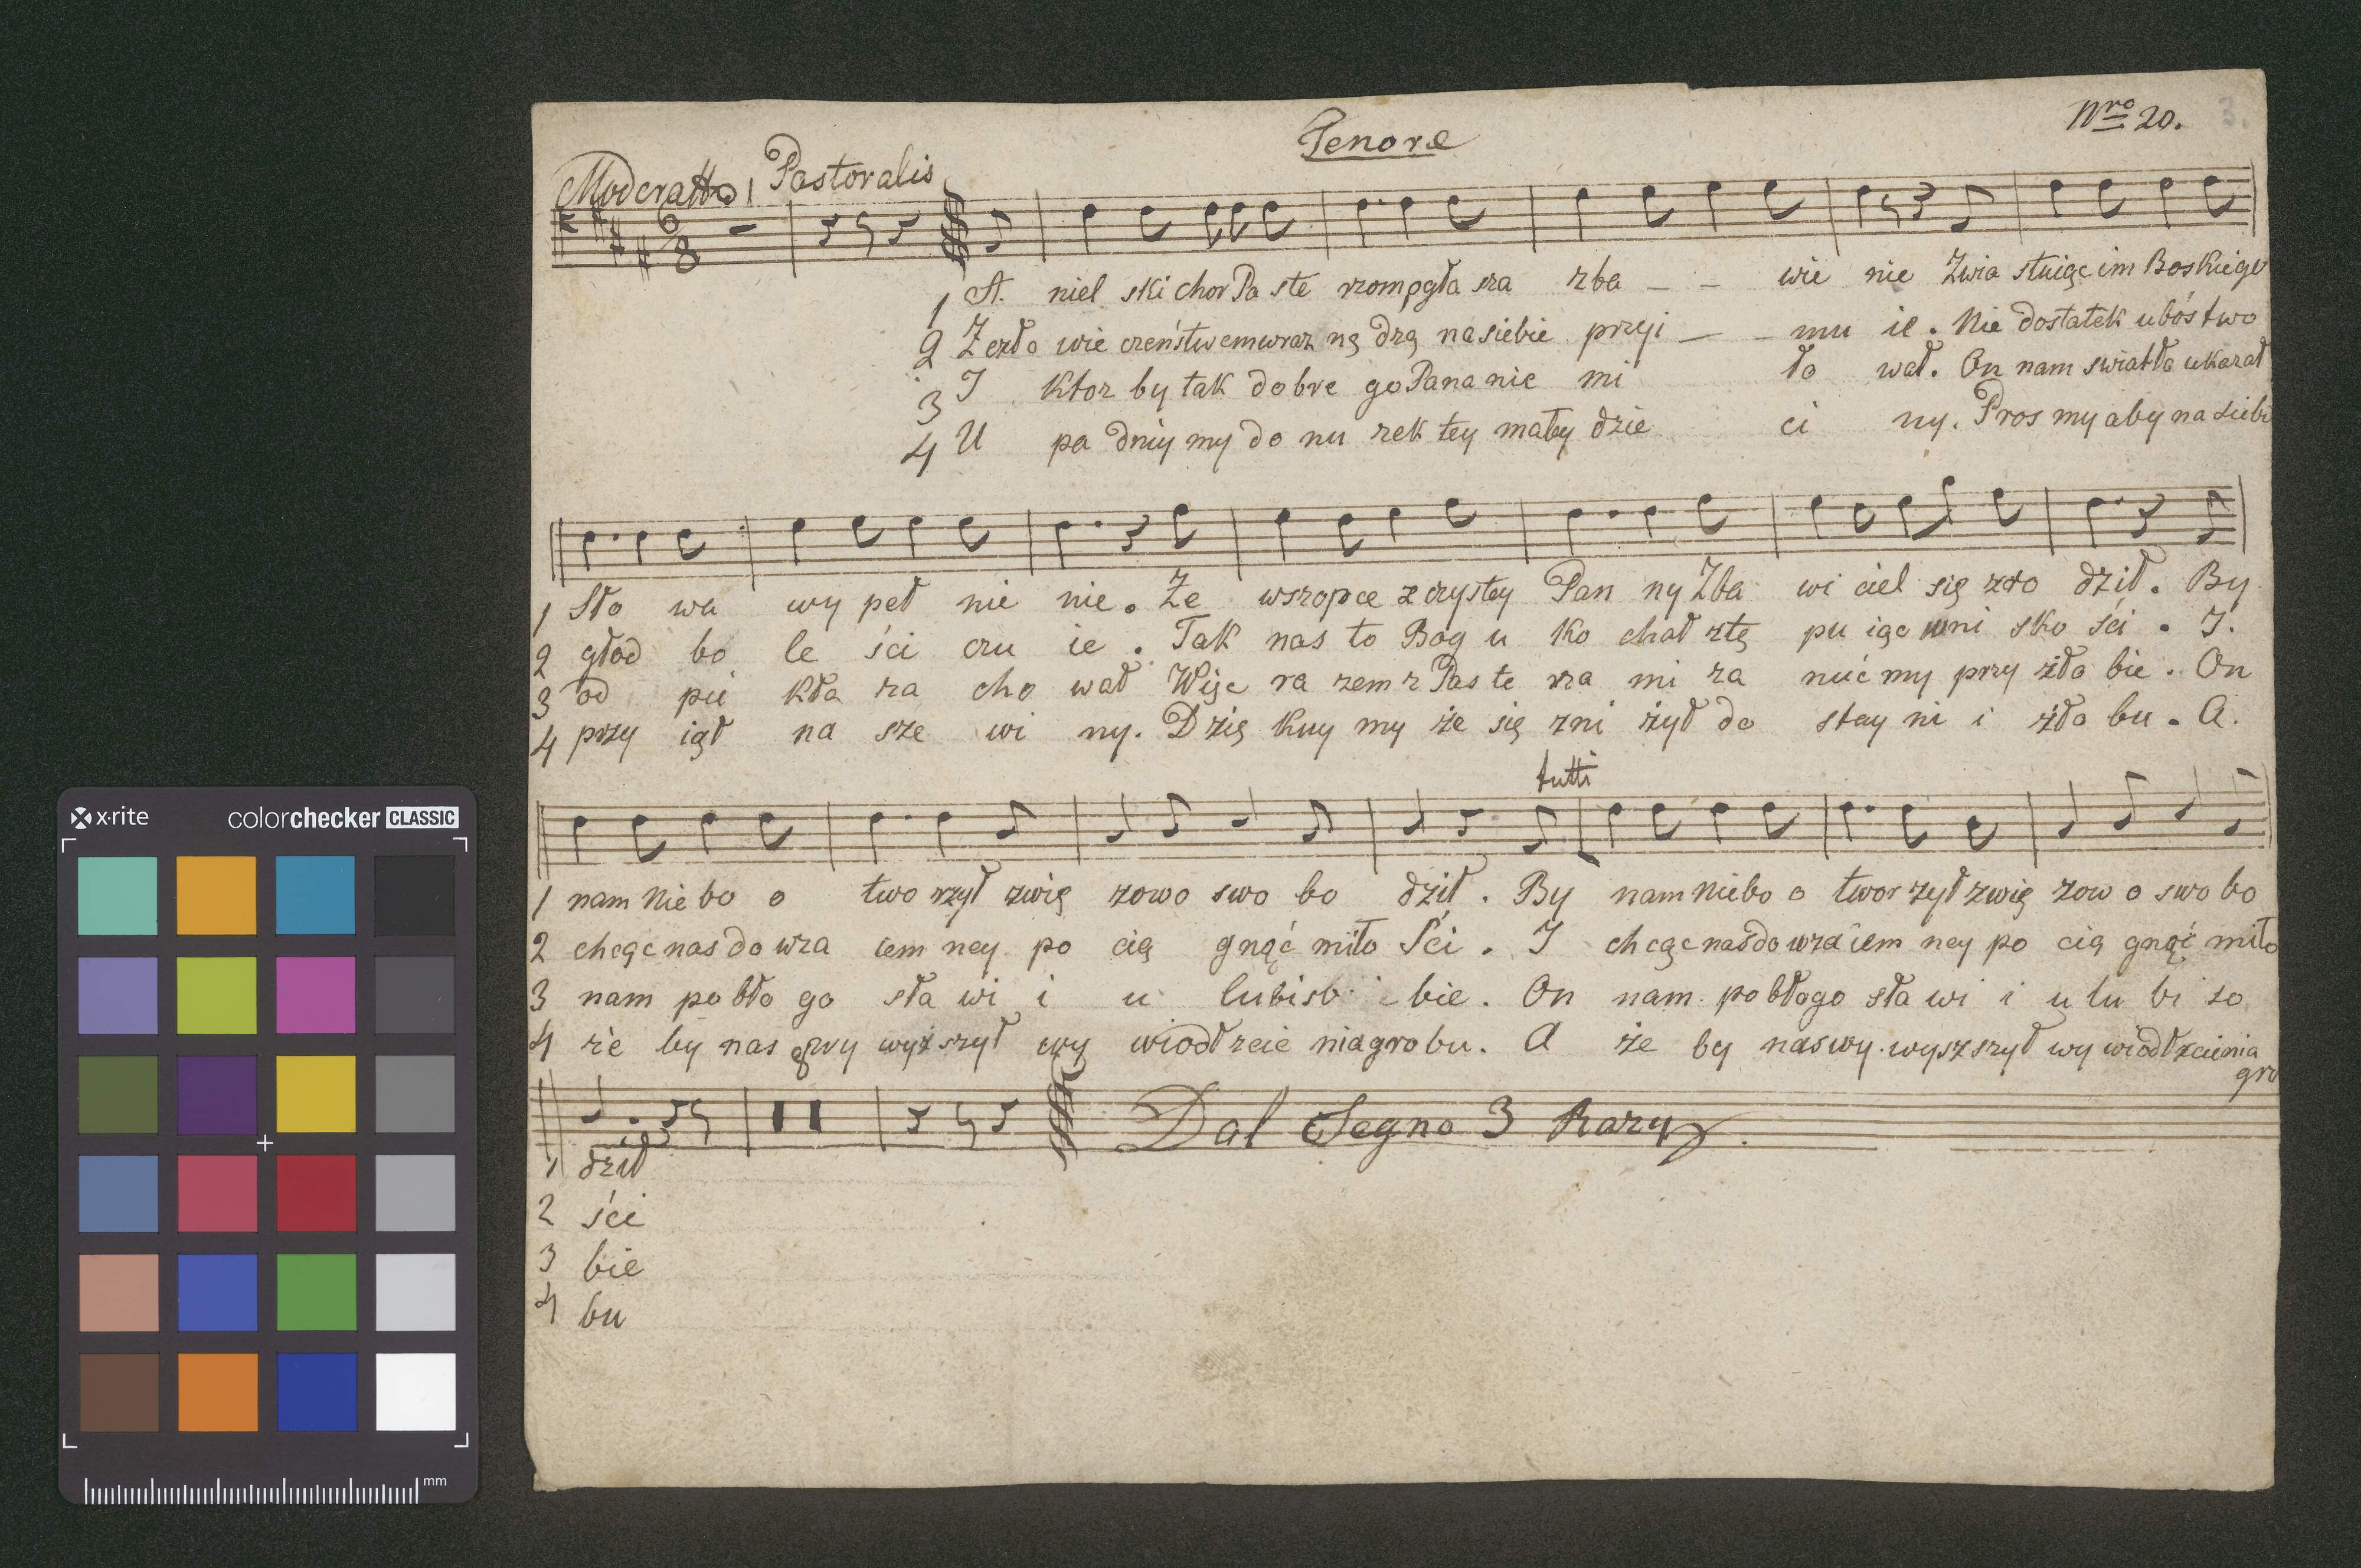 Tenore
Nro 20. 3.
Moderatto Pastoralis
6 8
1 A. niel ski chor Pa ste rzom ogła sza zba - - wie nie Zwia stuiąc im Boskiego
2 Zezło wie czeństwem wraz nę dzę na siebie przyi - - mu ie. Nie dostatek ubóstwo
3 I ktoz by tak dobre go Pana nie mi ło wał. On nam swiatła ukazał
4 U pa dniy my do nu zek tey małey dzie ci ny. Pros my aby na siebi
1 Sło wa wy peł nie nie. Ze wszopce z czystey Pan ny Zba wi ciel się zro dził. By
2 głod bo le ści czu ie. Tak nas to Bog u ko chał stę pu iąc wni sko ści. I.
3 od pie kła za cho wał Więc ra zem z Pas te rza mi za nuć my przy żło bie. On
4 przy iął na sze wi ny. Dzię kuy my że się zni żył do stay ni i żło bu. A.
tutti
1 nam Nie bo o two rzył zwię zowo swo bo dził. By nam Niebo o twor zył zwię zow o swo bo
2 chcąc nas do wza iem ney po cią gnąć miło Ści. I chcąc nas do wza iem ney po cią gnąć miło
3 nam po bło go sła wi i u lubi sob bie. On nam pobłogo sła wi i u lu bi so
4 że by nas wy wyż szył wy wiodł zcie nia grobu. A że by nas wy wyszszył wy wiodł zcienia
gro
Dal Segno 3 Razy.
1 dził
2 ści
3 bie
4 bu
x-rite colorchecker CLASSIC
mm